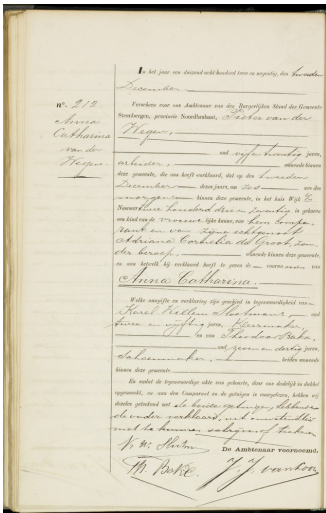 In het jaar een duizend acht honderd twee en negentig, den tweeden
December
No. 212
Anna
Catharina
van der
Wegen.
Verscheen voor ons Ambtenaar van den Burgerlijken Stand der Gemeente
Steenbergen, provincie Noordbrabant, Pieter van der
Wegen,
oud vijf en twintig jaren,
arbeider, wonende binnen
deze gemeente, die ons heeft verklaard, dat op den tweeden
December dezes jaars, om zes uren des
morgens binnen deze gemeente, in het huis Wijk E
Nummer twee honderd drie en twintig is geboren
een kind van de vrouwelijke kunne, van hem compa-
rant en van zijne echtgenoot
Adriana Cornelia de Groot, zon-
der beroep, wonende binnen deze gemeente,
en aan hetwelk hij verklaard heeft te geven de voornamen van
Anna Catharina.
Welke aangifte en verklaring zijn geschied in tegenwoordigheid van
Karel Willem oud
twee en vijftig jaren, Kleermaker,
en van Theodoor Bakx,
oud zeven en dertig jaren,
Schoenmaker, beiden wonende
binnen deze gemeente
En nadat de tegenwoordige akte van geboorte, daar van dadelijk in dubbel
opgemaakt, en aan den Comparant en de getuigen is voorgelezen, hebben wij
dezelve geteekend met de beide getuigen, hebbende
de vader verklaard, uit onkunde
niet te kunnen schrijven of teekenen
De Ambtenaar voornoemd,
Th. Bakx J. J. van Loon